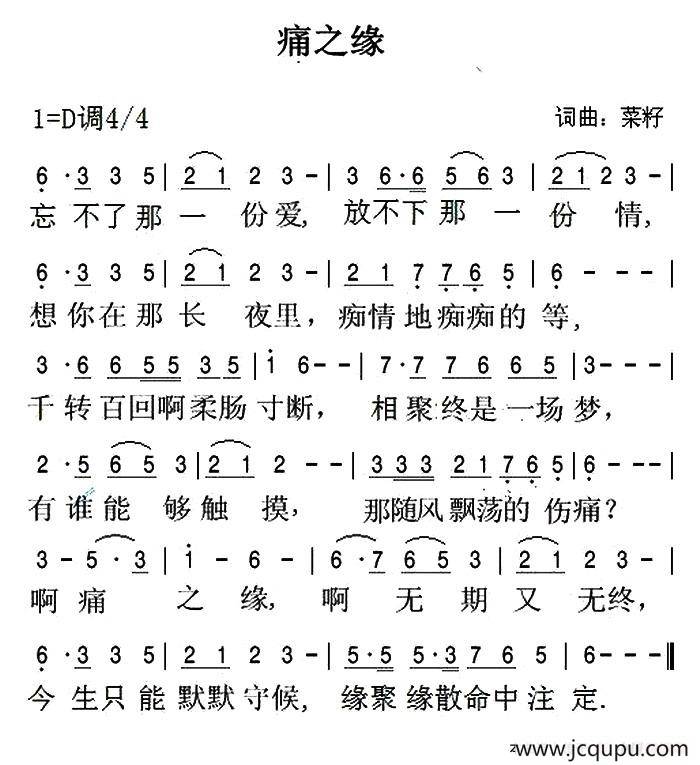 痛之缘
1=D调4/4 词曲：菜籽
6·3 3 5|2 1 2 3-|3 6·6 5 6 3|2 1 2 3-|
忘不了那一份爱，放不下那一份情，
6·3 3 5|2 1 2 3-|2 1 7 7 6 5|6---|
想你在那长夜里，痴情地痴痴的等，
3·6 6 5 5 3 5|1 6--|7·7 7 6 6 5|3---|
千转百回啊柔肠寸断，相聚终是一场梦，
2·5 6 5 3|2 1 2--|3 3 3 2 1 7 6 5|6---|
有谁能够触摸，那随风飘荡的伤痛？
3-5·3|1-6-|6·7 6 5 3|2 3 1-|
啊痛之缘，啊无期又无终，
6·3 3 5|2 1 2 3-|5·5 5·3 7 6 5|6---‖
今生只能默默守候，缘聚缘散命中注定.
www.jcqupu.com